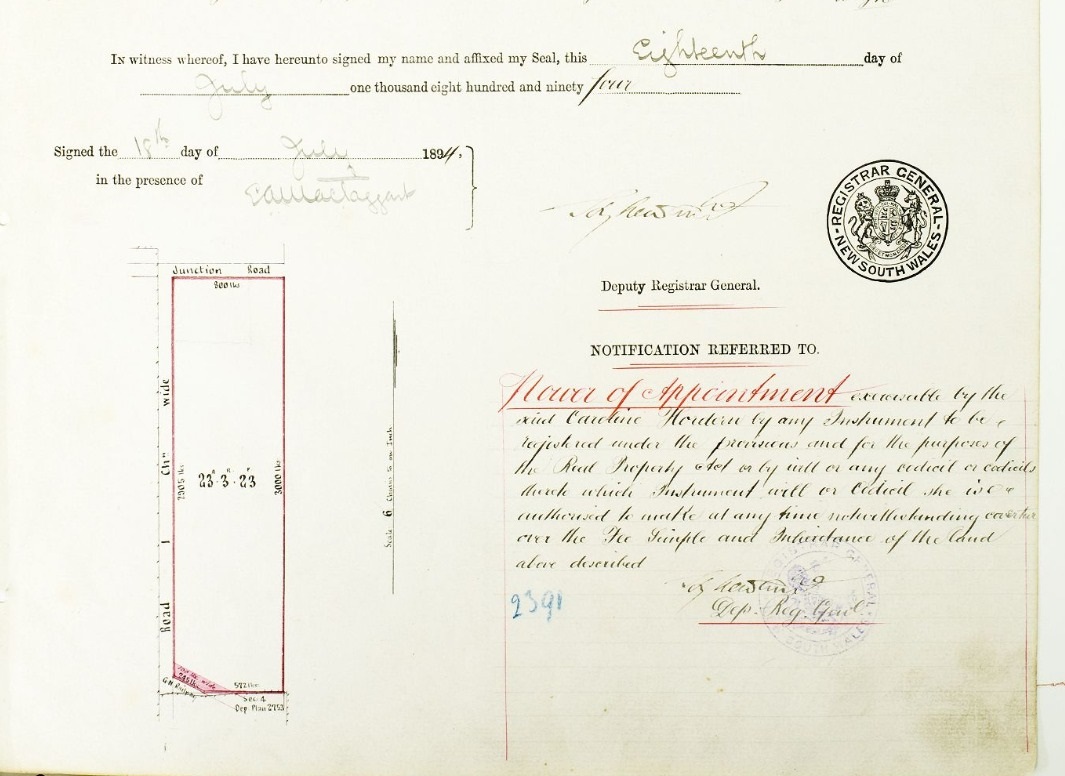 In witness whereof, I have hereunto signed my name and affixed my Seal, this Eighteenth day of
July one thousand eight hundred and ninety four
Signed the 18th day of July 1894,
in the presence of
REGISTRAR GENERAL
NEW SOUTH WALES
Deputy Registrar General.
NOTIFICATION REFERRED TO.
Power of Appointment exercisable by the
said Caroline Hordern by any Instrument to be
registered under the provisions and for the purposes of
the Real Property Act or by will or any codicil or codicils
thereto which Instrument will or Codicil she is
authorised to make at any time notwithstanding coverture
over the Fee Simple and Inheritance of the land
above described
Dep. Reg. Genl.
2391
Junction Road
800 lks
Road 1 Chn wide
2905 lks
23a·3r·23
3000 lks
Scale 6 Chains to one Inch
245 lks
572 lks
Sec. 4
Dep. Plan 2753